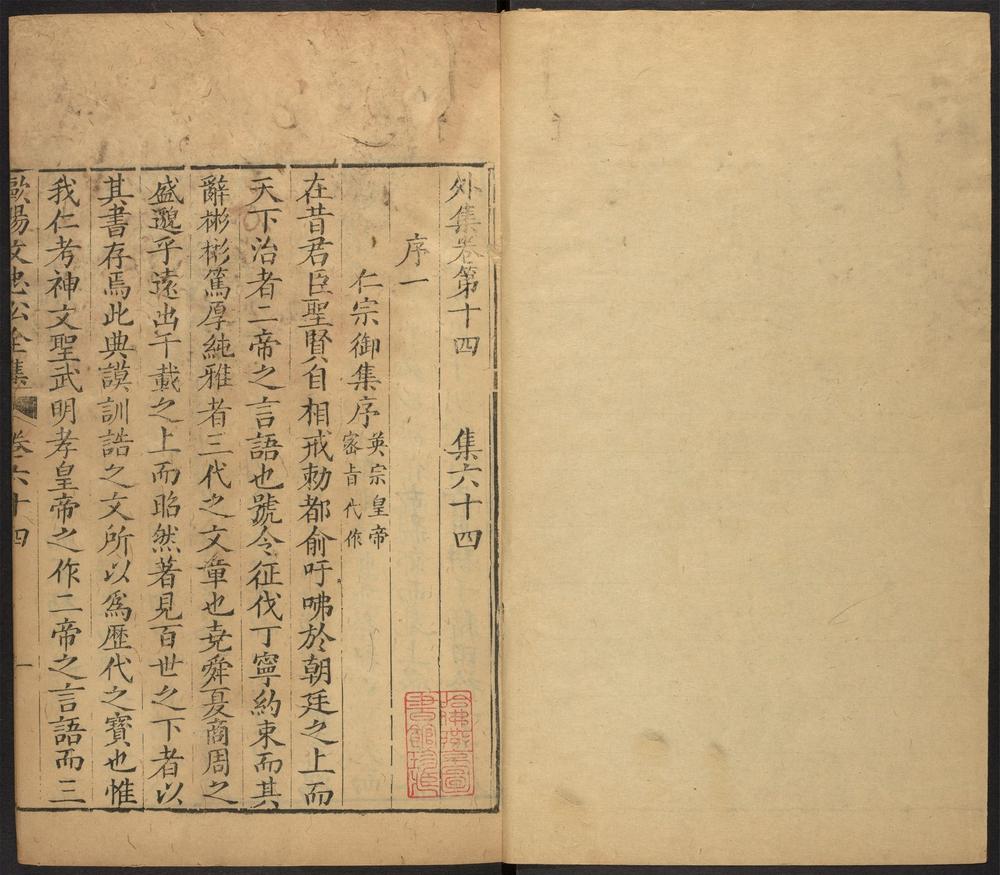 外集卷第十四 集六十四
序一
仁宗御集序 英宗皇帝
密旨代作
在昔君臣聖賢自相戒勅都俞吁咈於朝廷之上而
天下治者二帝之言語也號令征伐丁寧約束而其
辭彬彬篤厚純雅者三代之文章也堯舜夏商周之
盛邈乎遠出千載之上而昭然著見百世之下者以
其書存焉此典謨訓誥之文所以爲歷代之寶也惟
我仁考神文聖武明孝皇帝之作二帝之言語而三
歐陽文忠公全集 卷六十四 一
哈佛燕京圖
書館珍藏